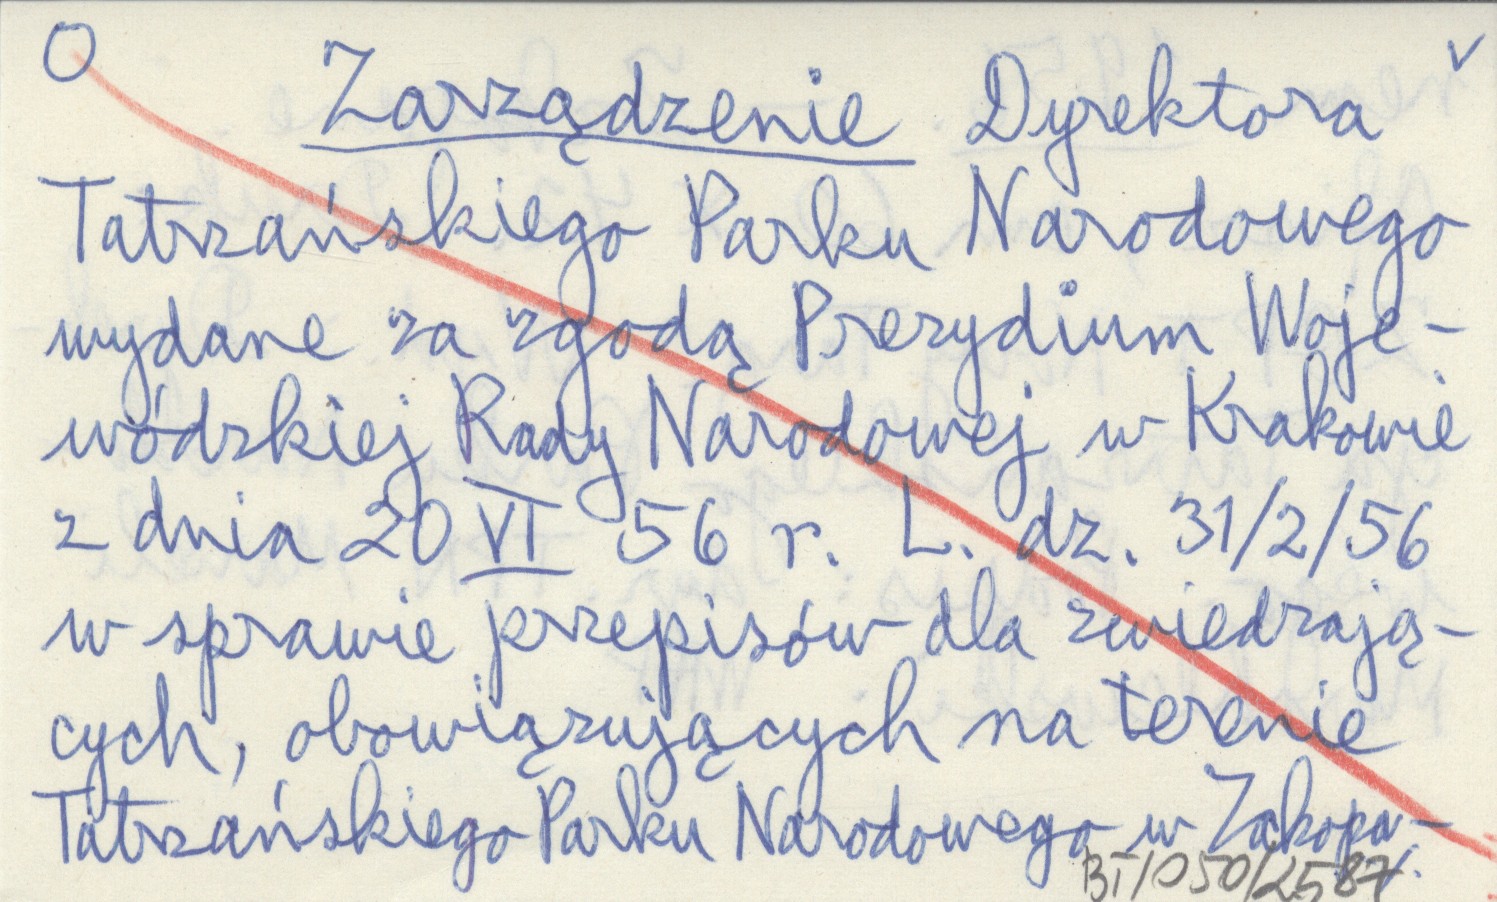 O Zarządzenie Dyrektora v
Tatrzańskiego Parku Narodowego
wydane za zgodą Prezydium Woje-
wódzkiej Rady Narodowej w Krakowie
z dnia 20 VI 56 r. L. dz. 31/2/56
w sprawie przepisów dla zwiedzają-
cych, obowiązujących na terenie
Tatrzańskiego Parku Narodowego w Zakopa-
BT/050/2587